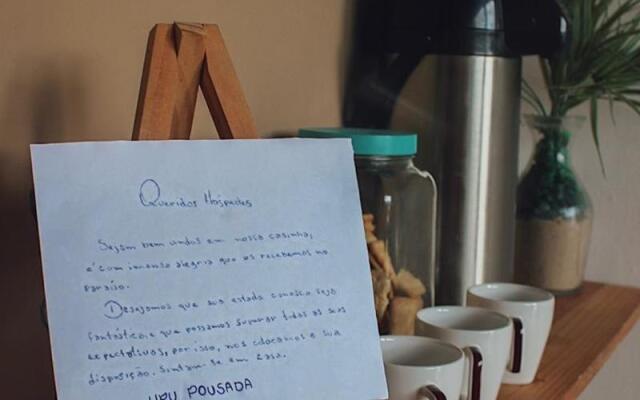 Queridos Hóspedes
Sejam bem vindos em nossa casinha,
é com imensa alegria que os recebemos no
paraíso.
Desejamos que sua estada conosco seja
fantástica, e que possamos superar todas as suas
expectativas, por isso, nos colocamos a sua
disposição. Sintam-se em casa.
UPU POUSADA